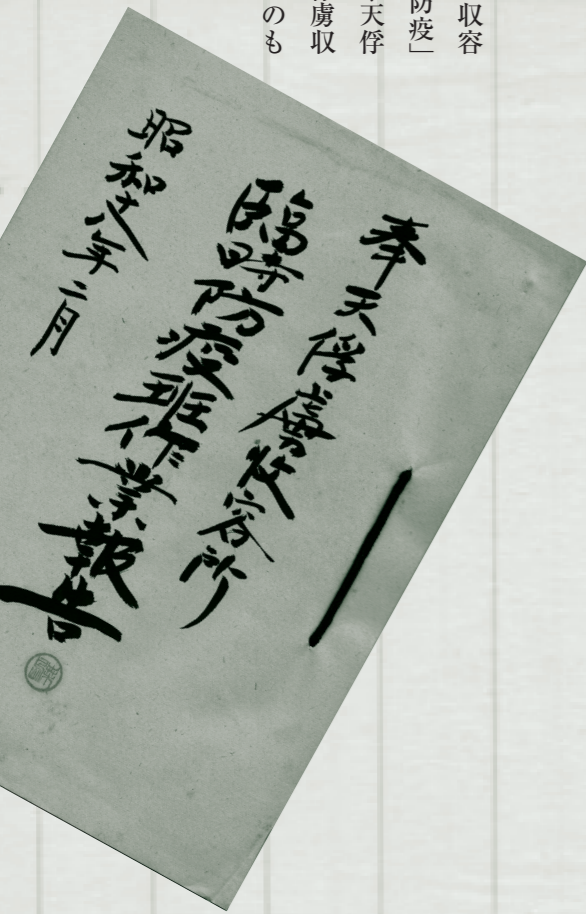 収容
防疫」
天俘
虜収
のも
奉天俘虜收容所
臨時防疫班作業報告
昭和十八年二月